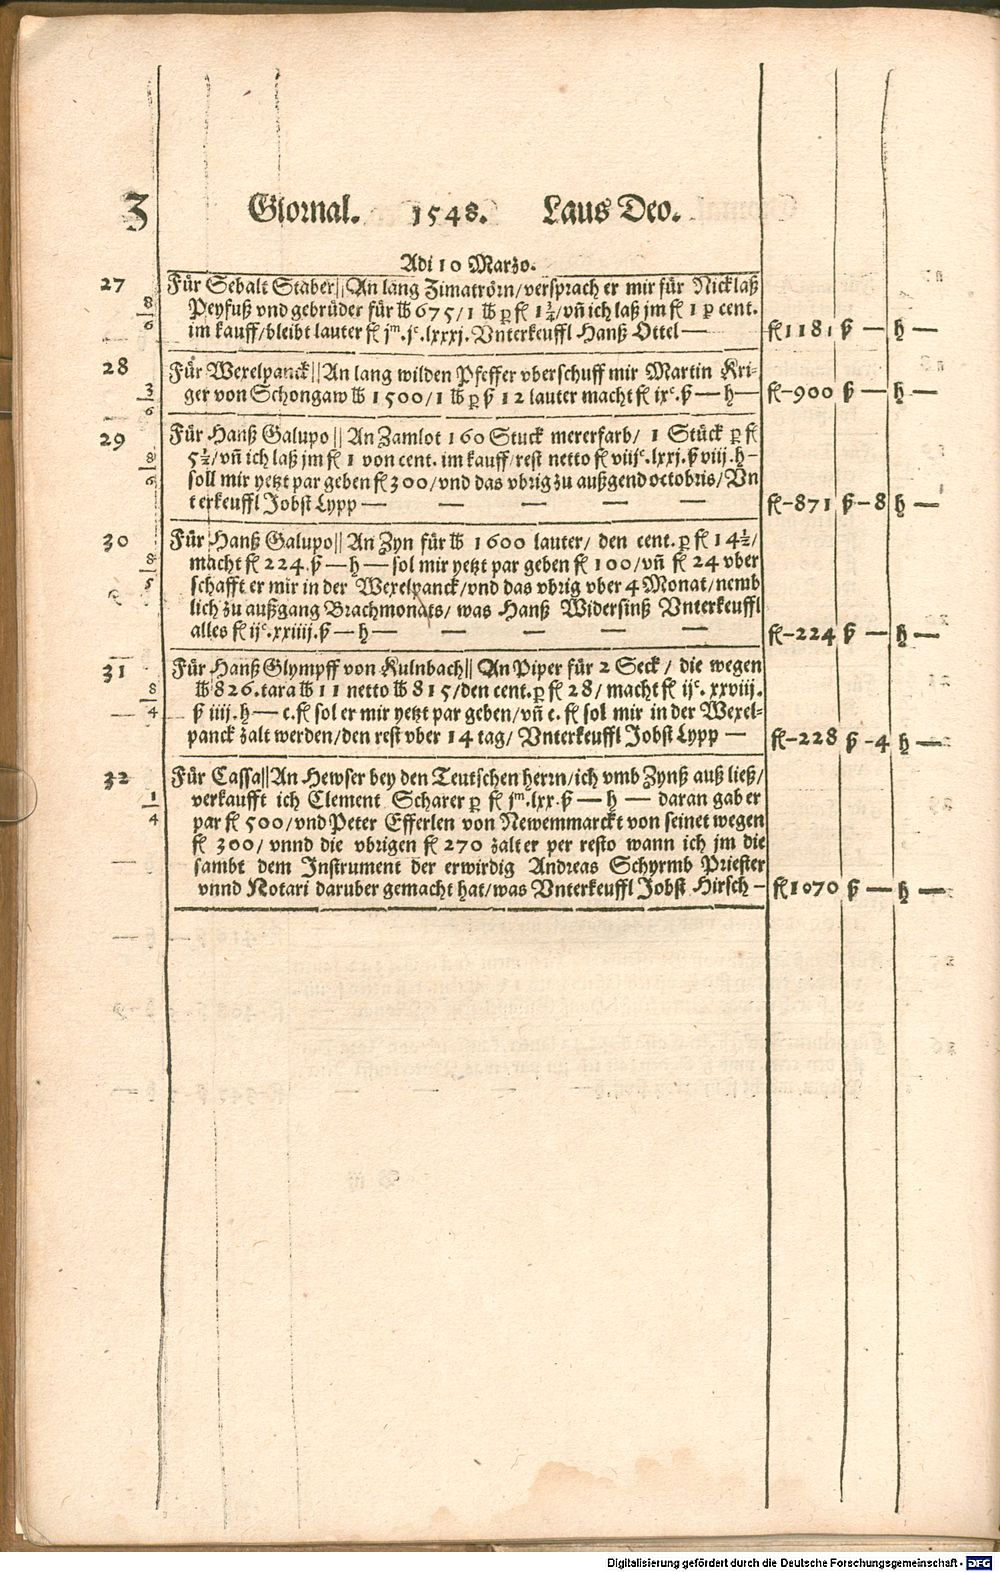 3 Giornal. 1548. Laus Deo.
Adi 10 Marzo.
27 Für Sebalt Staber|| An lang Zimatrörn/versprach er mir für Nicklaß
8/6 Peyfuß vnd gebrüder für ℔ 675/1 ℔ ꝑ fl 1¾/vn̄ ich laß jm fl 1 ꝑ cent.
im kauff/bleibt lauter fl jᵐ.jᶜ.lxxxj. Vnterkeuffl Hanß Ottel — fl 1181 ß — h —
28 Für Wexelpanck|| An lang wilden Pfeffer vberschuff mir Martin Kri-
3/6 ger von Schongaw ℔ 1500/1 ℔ ꝑ ß 12 lauter macht fl ixᶜ.ß — h — fl-900 ß — h —
29 Für Hanß Galupo|| An Zamlot 160 Stuck mererfarb/ 1 Stück ꝑ fl
8/5 5½/vn̄ ich laß jm fl 1 von cent. im kauff/rest netto fl viijᶜ.lxxj.ß viij.h-
soll mir yetzt par geben fl 300/vnd das vbrig zu außgend octobris/Vn
terkeuffl Jobst Lypp — — — — fl-871 ß-8 h —
30 Für Hanß Galupo|| An Zyn für ℔ 1600 lauter/ den cent. ꝑ fl 14½/
8/5 macht fl 224.ß — h — sol mir yetzt par geben fl 100/vn̄ fl 24 vber
schafft er mir in der Wexelpanck/vnd das vbrig vber 4 Monat/nemb
lich zu außgang Brachmonats/ was Hanß Widersinß Vnterkeuffl
alles fl ijᶜ.xxiiij.ß — h — — — — — fl-224 ß — h —
31 Für Hanß Glympff von Kulnbach|| An Piper für 2 Seck/ die wegen
8/4 ℔ 826.tara ℔ 11 netto ℔ 815/den cent.ꝑ fl 28/ macht fl ijᶜ.xxviij.
ß iiij.h — c.fl sol er mir yetzt par geben/vn̄ c.fl sol mir in der Wexel-
panck zalt werden/den rest vber 14 tag/ Vnterkeuffl Jobst Lypp — fl-228 ß-4 h —
32 Für Cassa|| An Hewser bey den Teutschen herrn/ich vmb Zynß auß ließ/
1/4 verkaufft ich Clement Scharer ꝑ fl jᵐ.lxx.ß — h — daran gab er
par fl 500/vnd Peter Efferlen von Newemmarckt von seinet wegen
fl 300/ vnnd die vbrigen fl 270 zalt er per resto wann ich jm die
sambt dem Instrument der erwirdig Andreas Schyrmb Priester
vnnd Notari daruber gemacht hat/was Vnterkeuffl Jobst Hirsch — fl 1070 ß — h —
Digitalisierung gefördert durch die Deutsche Forschungsgemeinschaft - DFG